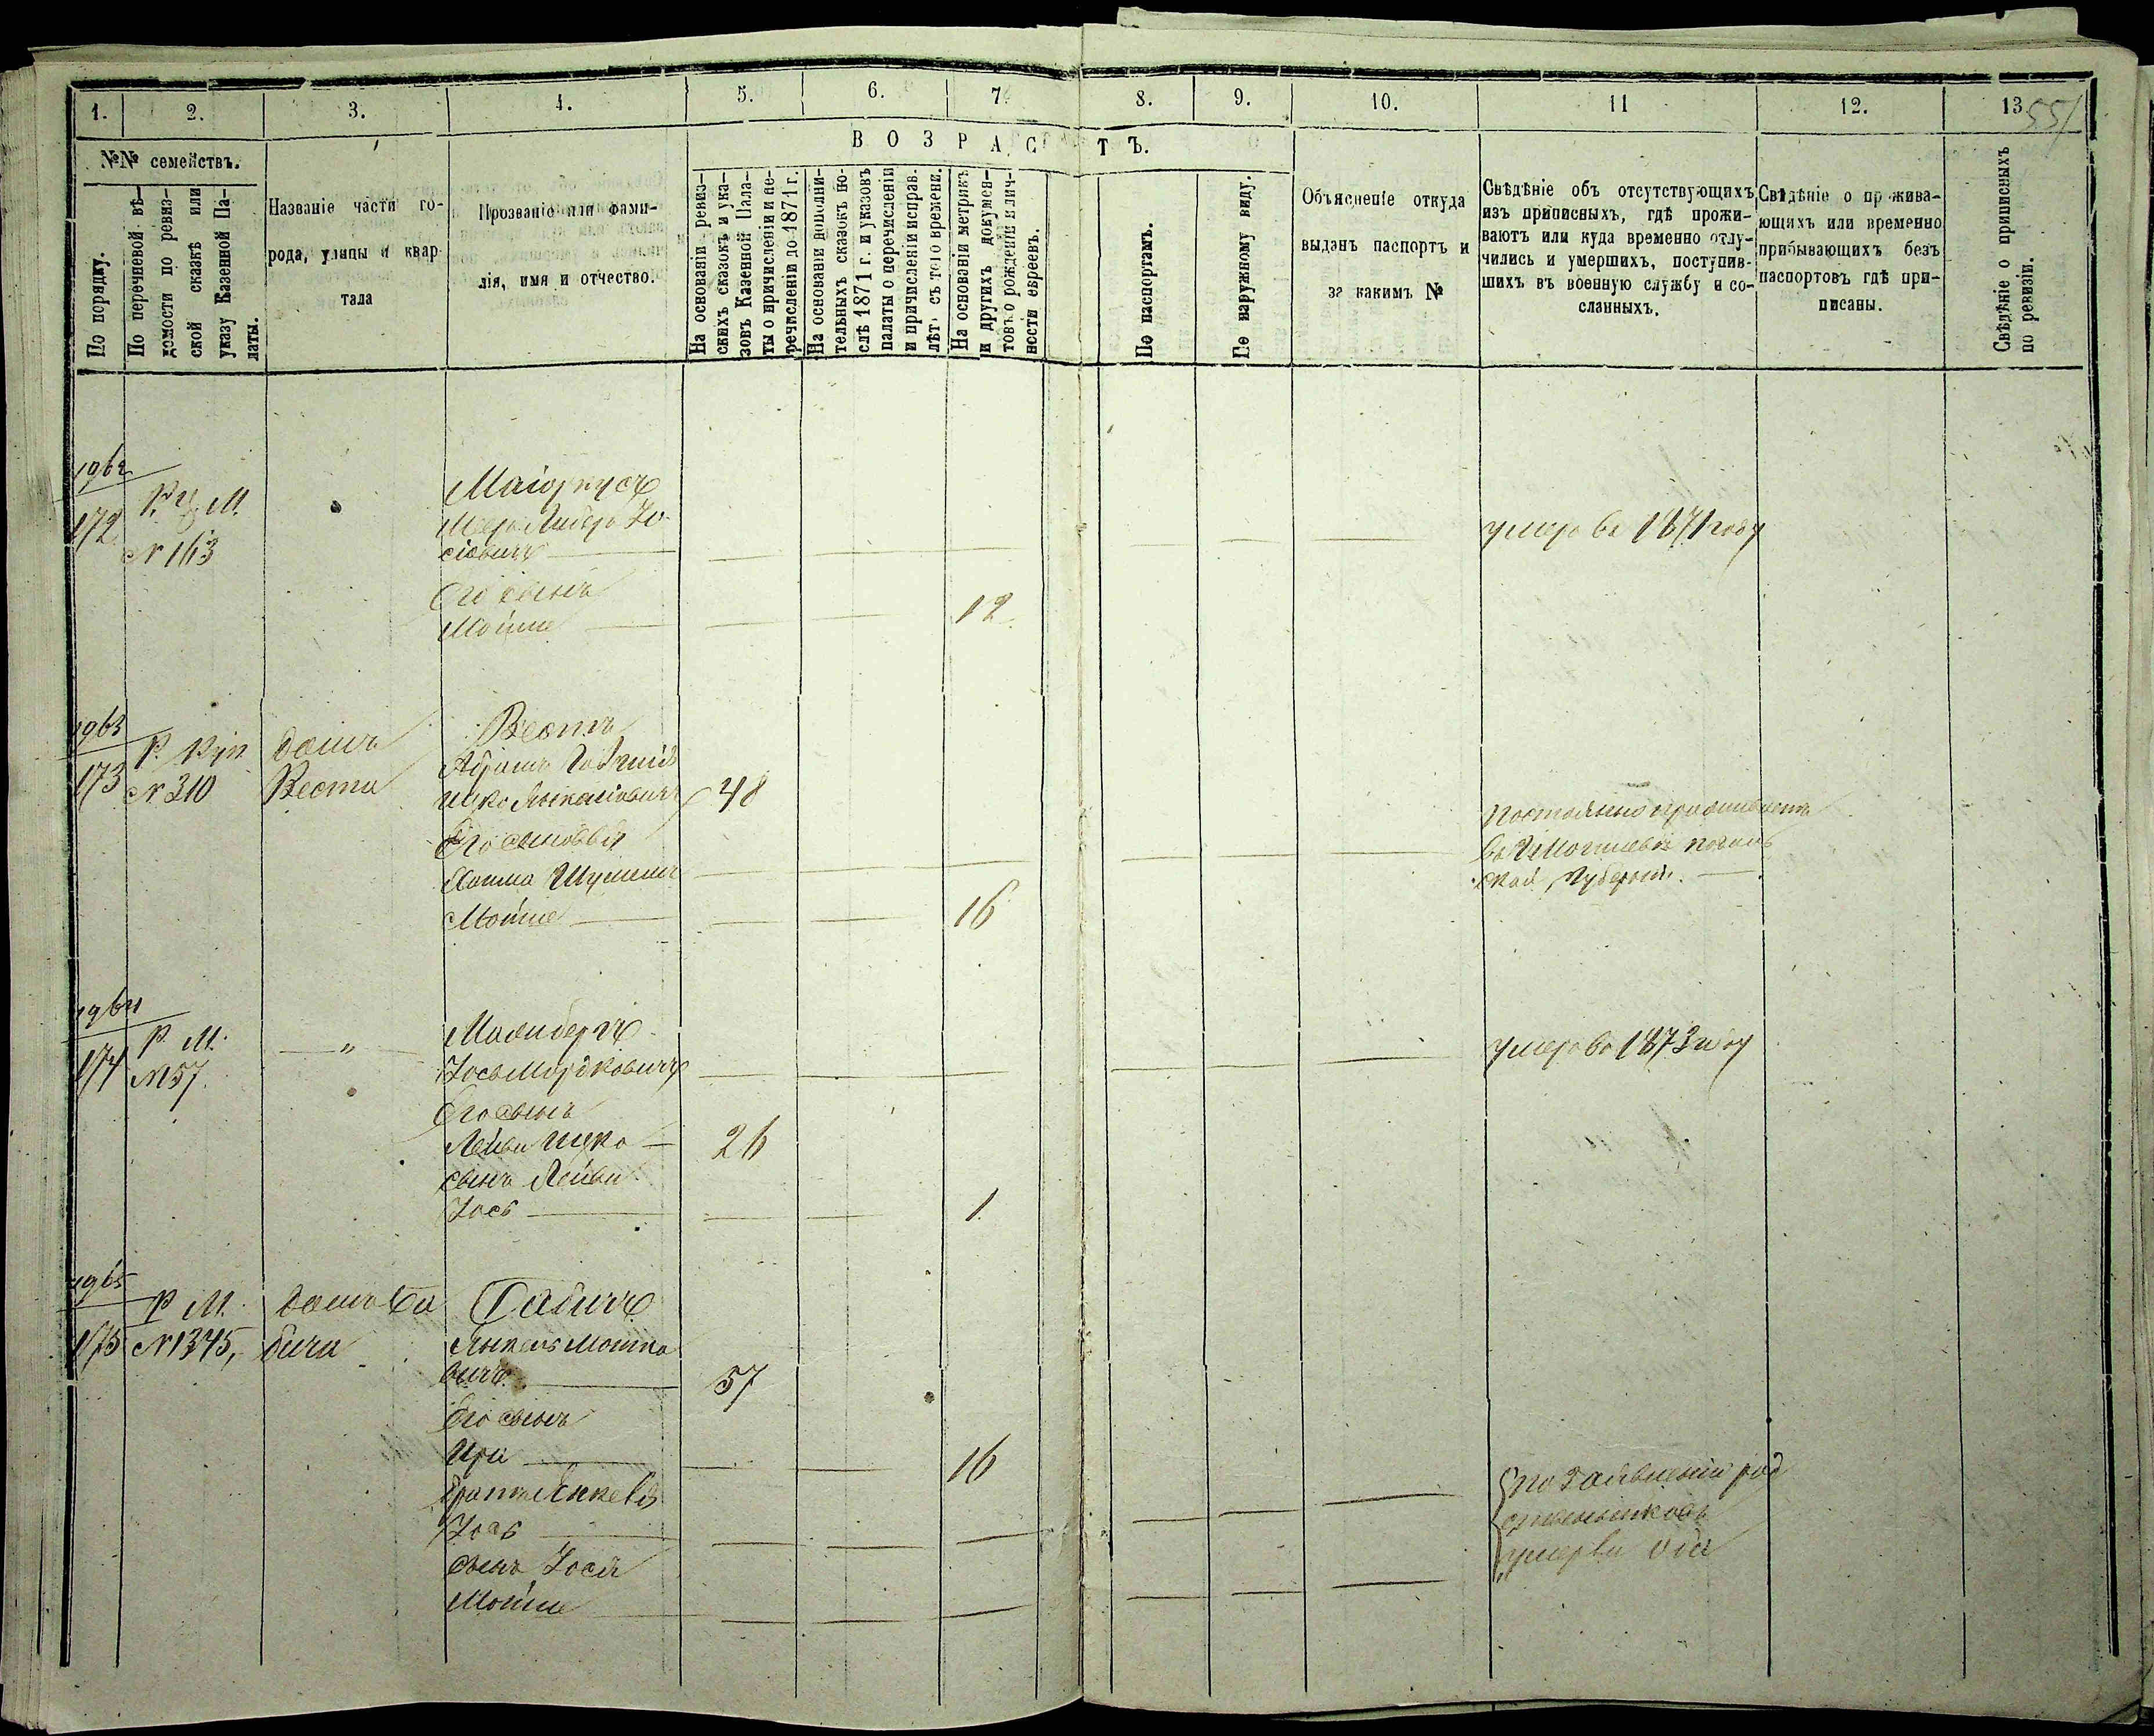 1. 2. 3. 4. 5. 6. 7. 8. 9. 10. 11 12. 13
551
№№ семействъ.
По порядку.
По перечневой вѣ-
домости по ревиз-
ской сказкѣ или
указу Казенной Па-
латы.
Названіе части го-
рода, улицы и квар-
тала
Прозваніе или фами-
лія, имя и отчество.
ВОЗРАСТЪ.
На основаніи ревиз-
скихъ сказокъ и ука-
зовъ Казенной Пала-
ты о причисленіи и пе-
речисленіи до 1871 г.
На основаніи дополни-
тельныхъ сказокъ по-
слѣ 1871 г. и указовъ
палаты о перечисленіи
и причисленіи исправ.
лѣтъ съ того времени.
На основаніи метрикъ
и другихъ докумен-
товъ о рожденіи и лич-
ности евреевъ.
По паспортамъ.
По наружному виду.
Объясненіе откуда
выданъ паспортъ и
за какимъ №
Свѣдѣніе объ отсутствующихъ
изъ приписныхъ, гдѣ прожи-
ваютъ или куда временно отлу-
чились и умершихъ, поступив-
шихъ въ военную службу и со-
сланныхъ.
Свѣдѣніе о прожива-
ющихъ или временно
прибывающихъ безъ
паспортовъ гдѣ при-
писаны.
Свѣдѣніе о приписныхъ
по ревизіи.
1962
172
№ 163
Маіоркусъ
Іо-
сіовичъ
умеръ въ 1871 году
Его сынъ
Мойше 12
1963
173
Р. Куп
№ 310
домъ
Веста
Вестъ
Абрамъ
Ицко 48
Его сыновья
Хаимъ Шулимъ
Постоянно проживаетъ
ской Губерніи.
Мойше 16
1964
174
Р. М.
№ 57.
"
Мадибергъ
Іось Мордковичъ
умеръ въ 1873 году
Его сынъ
Лейба Ицко 26
сынъ Лейбы
Іось 1
1965
175
Р. М.
№ 1345,
домъ Ба
бича
Бабичъ
Янкель Мошко
вичъ 57
Его сынъ
Ири 16
братъ Янкеля
Іось
сынъ Іося
Мойше
по заявленію род
ственниковъ
умерли оба